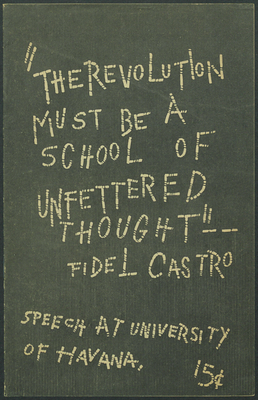 "THE REVOLUTION
MUST BE A
SCHOOL OF
UNFETTERED
THOUGHT"--
FIDEL CASTRO
SPEECH AT UNIVERSITY
OF HAVANA.
15¢